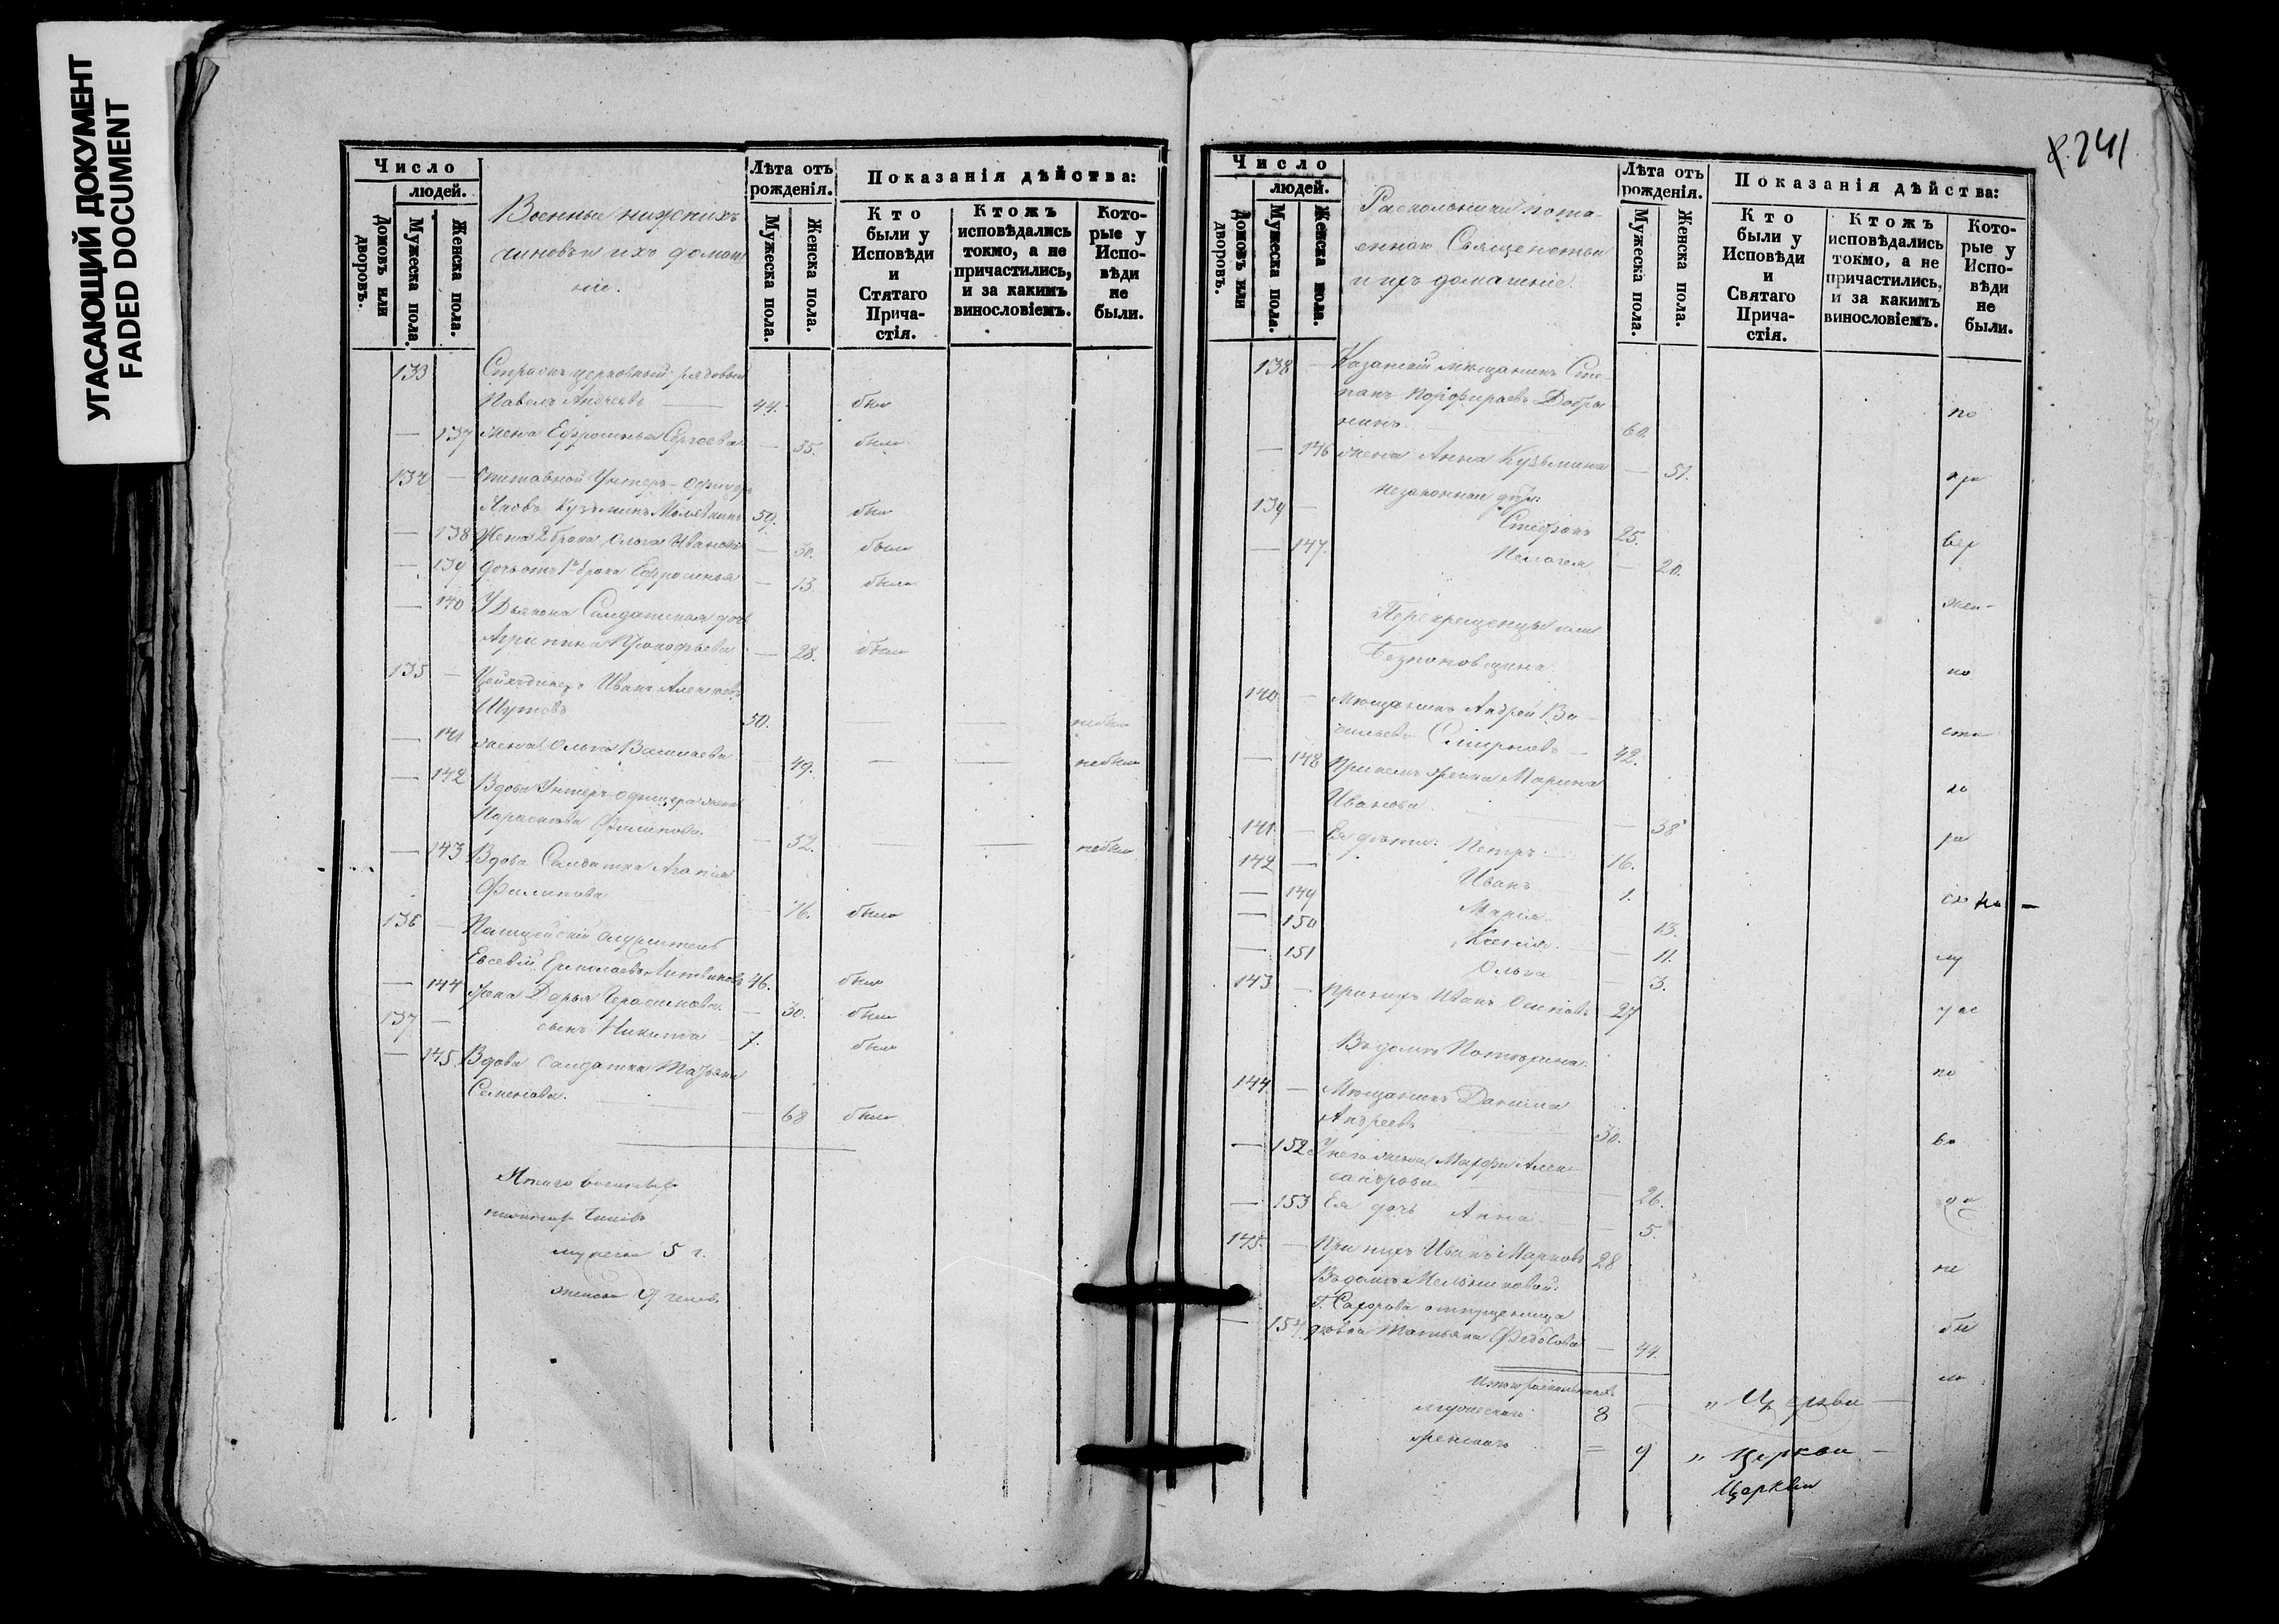 УГАСАЮЩИЙ ДОКУМЕНТ
FADED DOCUMENT
Число
людей.
Домовъ или дворовъ.
Мужеска пола.
Женска пола.
Военные нижнихъ
чиновъ и ихъ домаш
ніе.
Лѣта отъ
рожденія.
Мужеска пола.
Женска пола.
Показанія дѣйства:
Кто
были у
Исповѣди
и
Стятаго
Прича-
стія.
Ктожъ
исповѣдались
токмо, а не
причастились,
и за какимъ
винословіемъ.
Кото-
рые у
Испо-
вѣди
не
были.
133 церковный рядовый
Павелъ Андреевъ 44. былъ
— 137 жена Ефросинья Сергеева — 35. была
134 — Унтеръ-Офицеръ
Яковъ Кузьминъ 59. былъ
— 138 Жена 2 брака Ольга Иванова — 30. была
— 139 дочь отъ 1го брака Ефросинья — 13. была
— 140 У Дьякона Салдатская дочь
Агрипина Прокофьева — 28. была
135 — Иванъ Алексеевъ
Шутовъ 50. — — небылъ
— 141 жена Ольга Васильева — 49. — — небыла
— 142 Вдова Унтеръ-офицера жена
Параскева Филипова — 52. — небыла
— 143 Вдова Салдатка Агапія
Филипова — 76. была
136 — Полицейскій служитель
Евсевій Ермолаевъ Литвиновъ 46. былъ
— 144 Жена Дарья Герасимова. — 30. была
137 — сынъ Никита 7. былъ
— 145 Вдова Салдатка Татьяна
Семенова. — 68 была
Итого военныхъ
нижнихъ Чиновъ
мужеска 5 ч.
женска 9 челов.
241
Число
людей.
Домовъ или дворовъ.
Мужеска пола.
Женска пола.
Раскольничи пота-
еннаго Священства
и ихъ домашніе.
Лѣта отъ
рожденія.
Мужеска пола.
Женска пола.
Показанія дѣйства:
Кто
были у
Исповѣди
и
Святаго
Прича-
стія.
Ктожъ
исповѣдались
токмо, а не
причастились,
и за какимъ
винословіемъ.
Кото-
рые у
Испо-
вѣди
не
были.
138 — Казанскій мѣщанинъ Сте-
панъ Порфирьевъ Добры-
нинъ. 60. по
— 146 жена Анна Кузьмина — 51. при
незаконныи дѣти:
139 — Стефанъ 25. вер
— 147. Пелагея — 20. жен-
Перекрещенцы или
Безпоповщина. но
140 — Мѣщанинъ Андрей Ва-
сильевъ Смирновъ — 42. ста
— 148 При немъ женка Марина
Иванова. — 38 ра
141 — Ея дѣти: Петръ 16.
142 — Иванъ 1.
— 149 Марія 13.
— 150 Ксенія. — 11. му
— 151 Ольга — 3.
143 — При нихъ Иванъ Осиповъ 27
Въ домѣ Потехина. по
144. — Мѣщанинъ Данила
Андреевъ 30. въ
— 152 У него жена Марфа Алек-
сандрова — 26.
— 153 Ея дочь Анна — 5.
145. — При нихъ Иванъ Марковъ 28
Въ домѣ Мельниковой: не
Г. Сахарова отпущеница
— 154 дѣвка Татьяна Федосова — 44. бы
Итого раскольниковъ ло
мужескихъ 8 — „ Церкви —
женскихъ = 9 „ Церкви —
Церкви